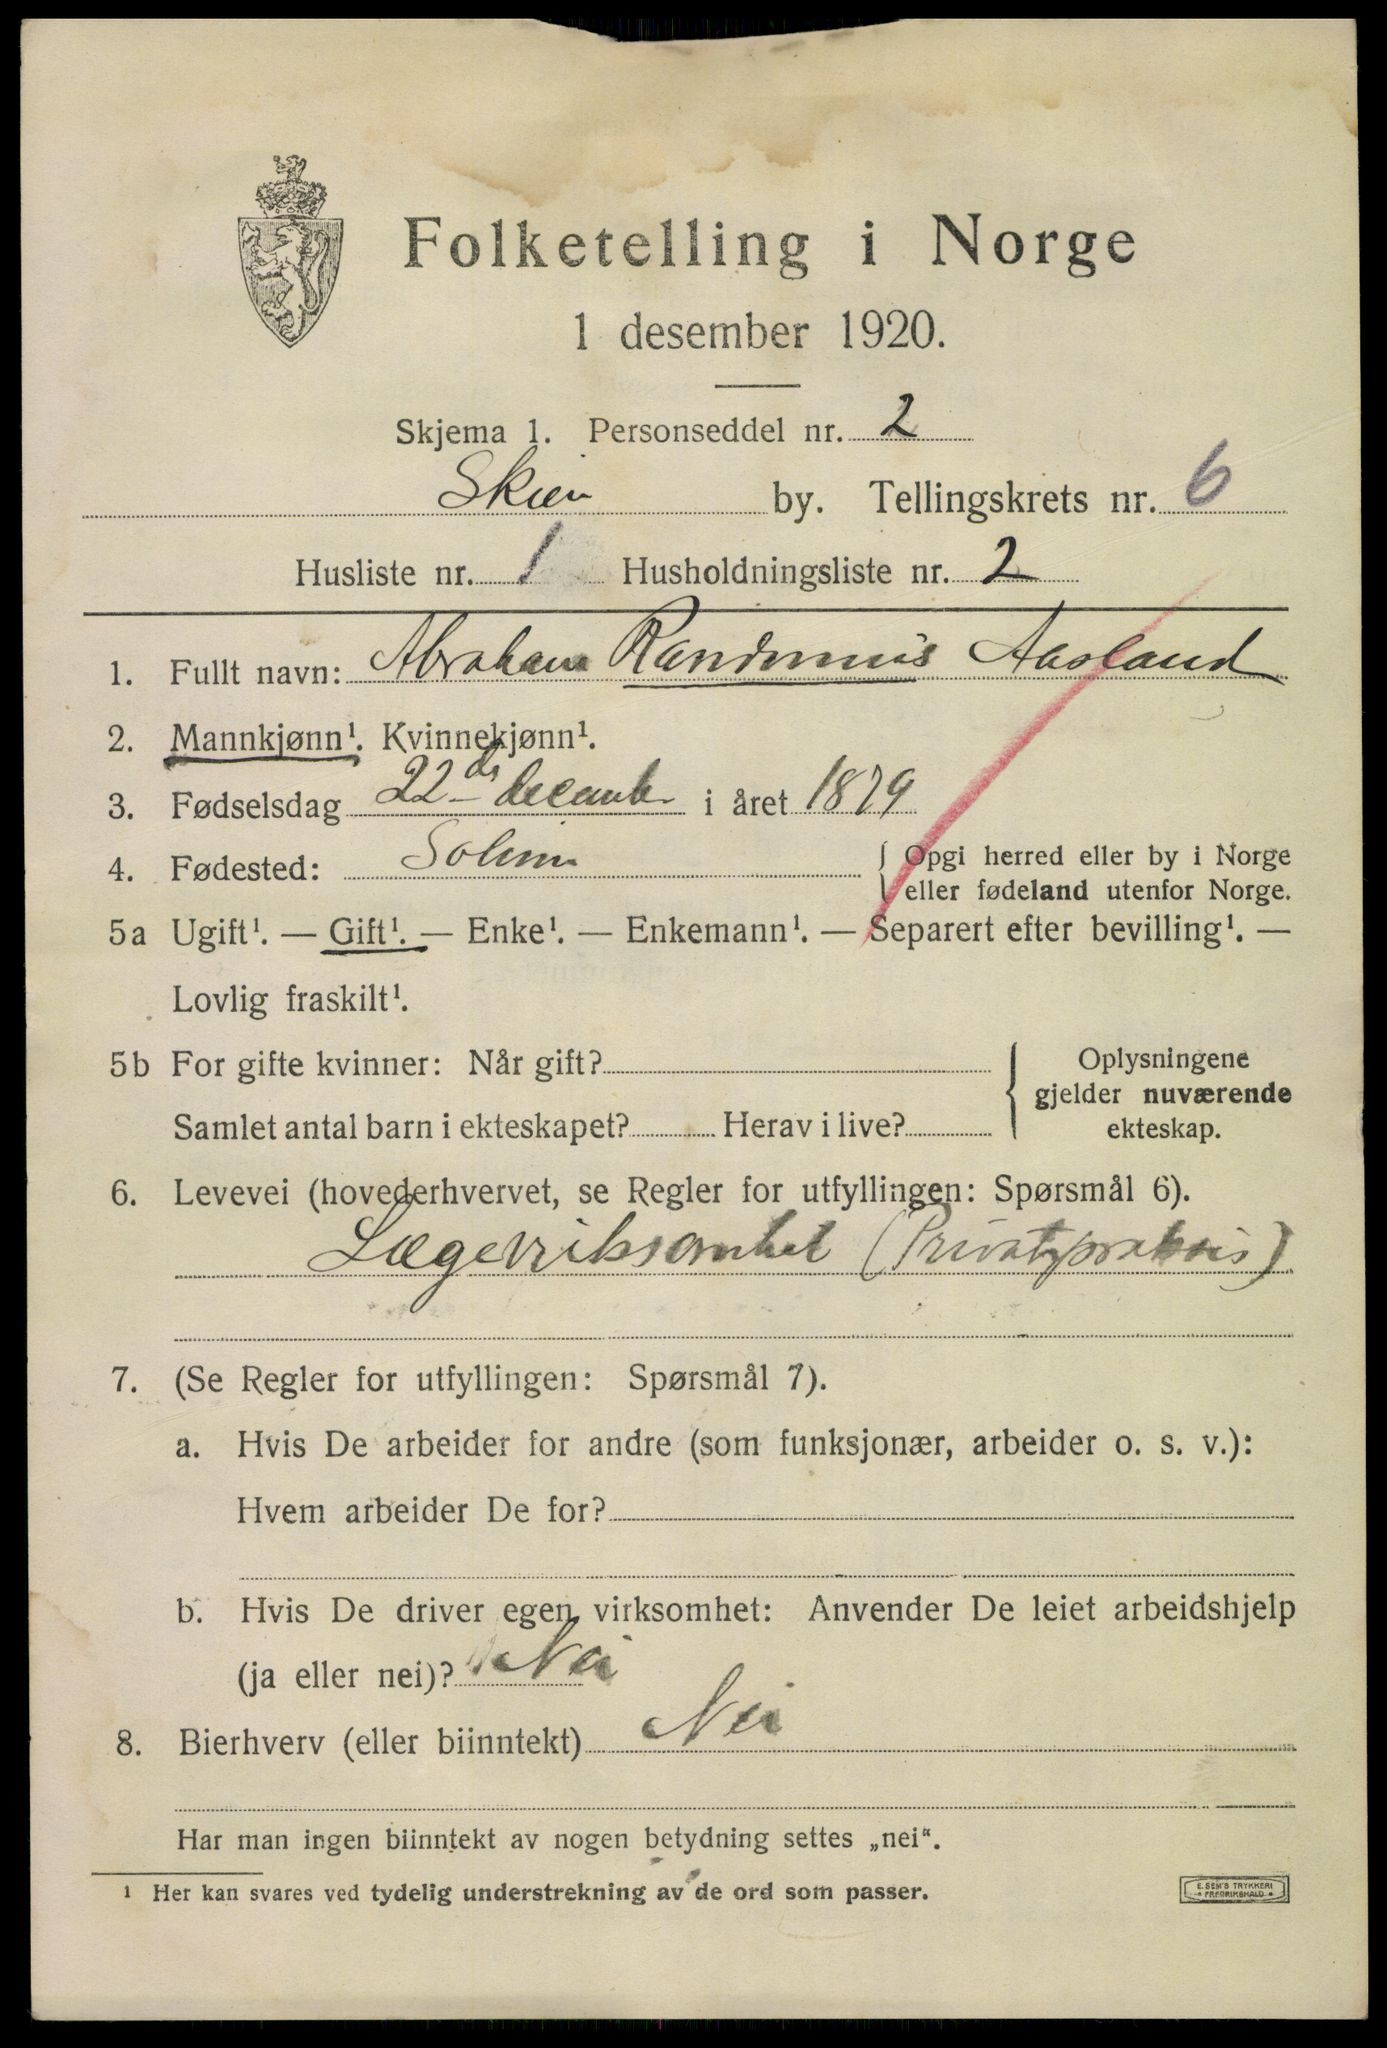 Folketelling i Norge
1 desember 1920.
Skjema 1. Personseddel nr. 2
Skien by. Tellingskrets nr. 6
Husliste nr. 1 Husholdningsliste nr. 2
1. Fullt navn: Abraham Aasland
2. Mannkjønn¹. Kvinnekjønn¹.
3. Fødselsdag 22de december i året 1879
4. Fødested: Solum { Opgi herred eller by i Norge
eller fødeland utenfor Norge.
5a Ugift¹. — Gift¹. — Enke¹. — Enkemann¹. — Separert efter bevilling¹. —
Lovlig fraskilt¹.
5b For gifte kvinner: Når gift? { Oplysningene
gjelder nuværende
Samlet antal barn i ekteskapet? Herav i live? ekteskap.
6. Levevei (hovederhvervet, se Regler for utfyllingen: Spørsmål 6).
Lægevirksomhet (Privatpraksis)
7. (Se Regler for utfyllingen: Spørsmål 7).
a. Hvis De arbeider for andre (som funksjonær, arbeider o. s. v.):
Hvem arbeider De for?
b. Hvis De driver egen virksomhet: Anvender De leiet arbeidshjelp
(ja eller nei)? Nei
8. Bierhverv (eller biinntekt) Nei
Har man ingen biinntekt av nogen betydning settes „nei“.
¹ Her kan svares ved tydelig understrekning av de ord som passer.
E. SEM'S TRYKKERI
FREDRIKSHALD